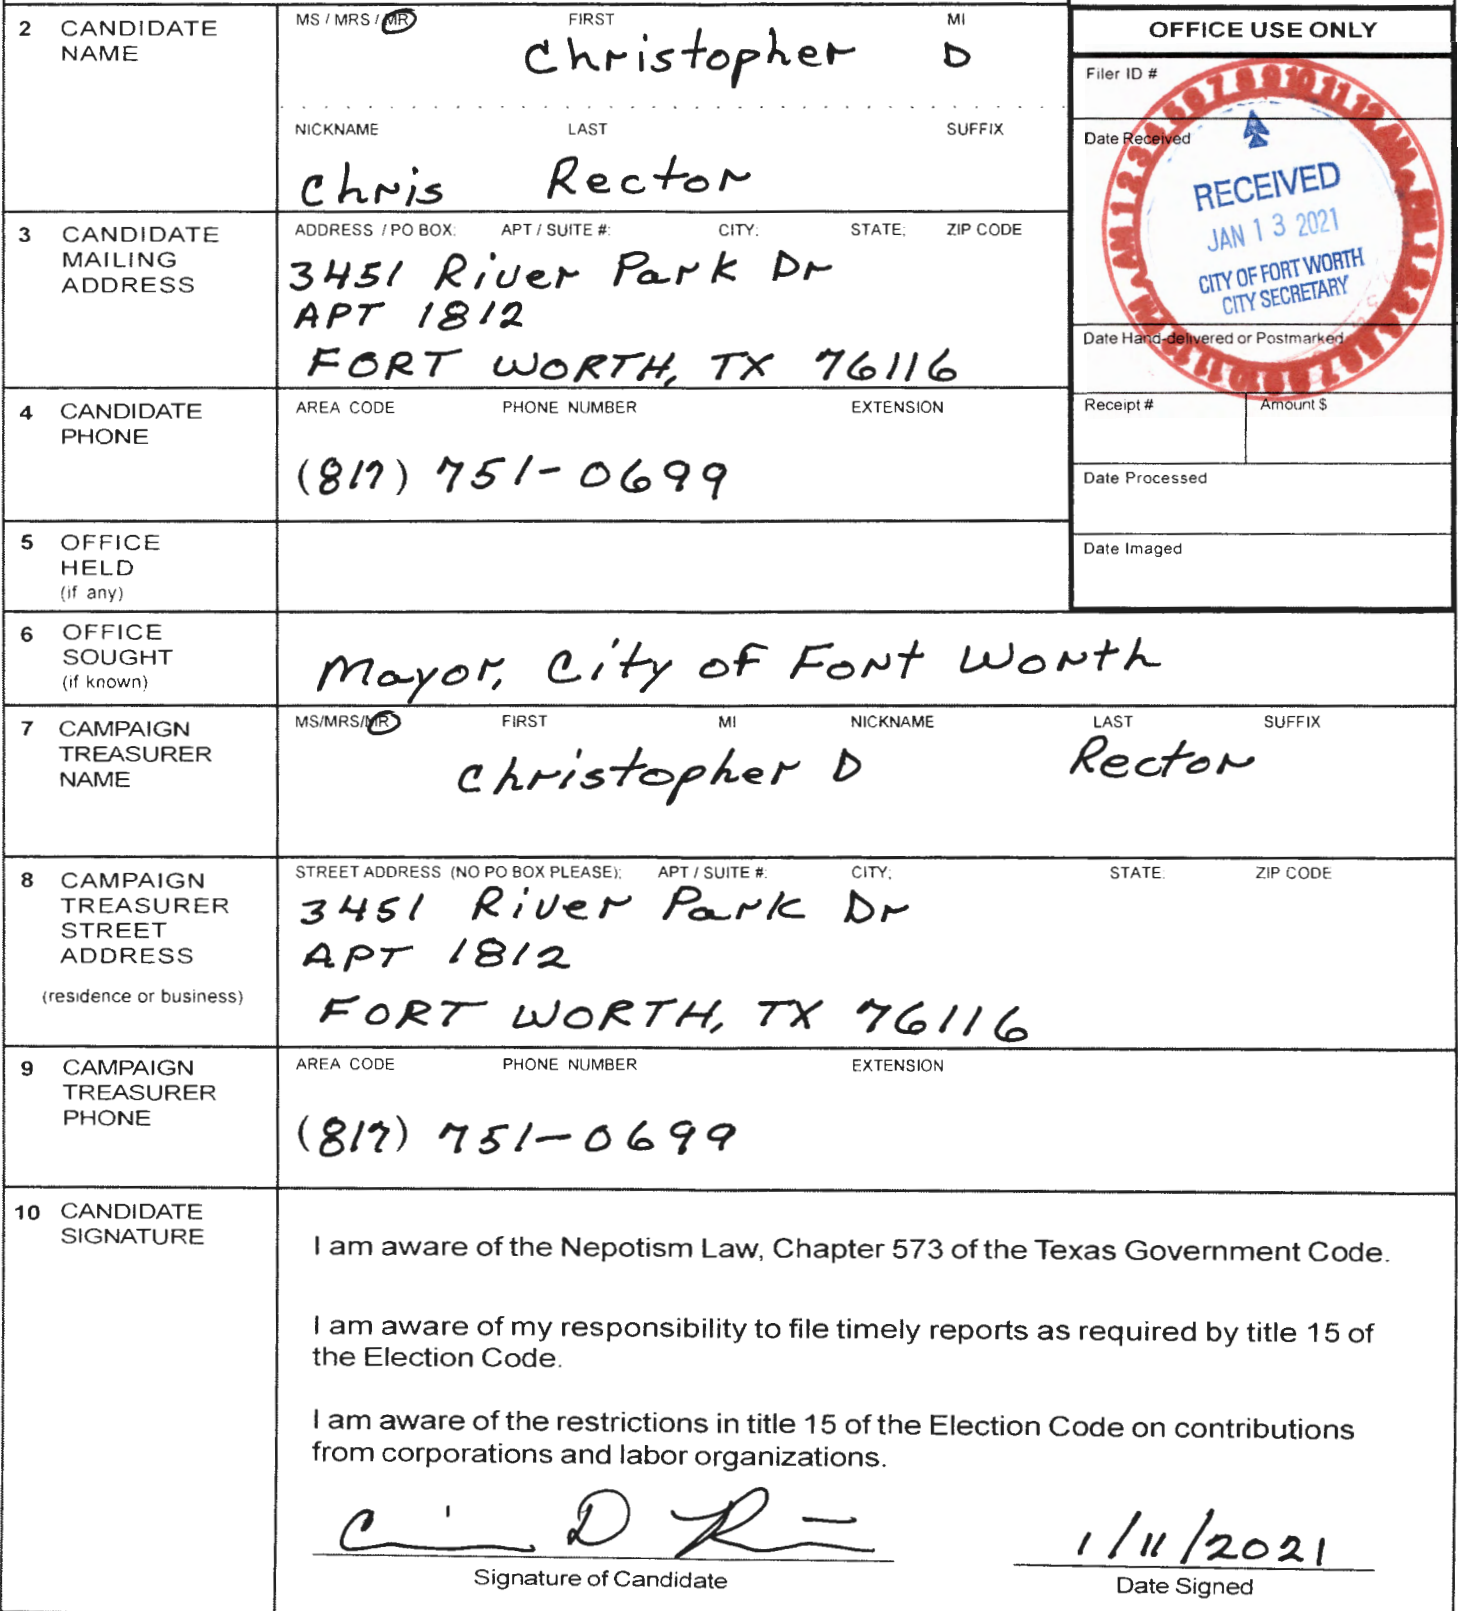 2 CANDIDATE NAME
MS / MRS / MR FIRST MI
Christopher D
NICKNAME LAST SUFFIX
Chris Rector
OFFICE USE ONLY
Filer ID #
Date Received
RECEIVED
JAN 13 2021
CITY OF FORT WORTH
CITY SECRETARY
Date Hand-delivered or Postmarked
Receipt # Amount $
Date Processed
Date Imaged
3 CANDIDATE MAILING ADDRESS
ADDRESS / PO BOX; APT / SUITE #: CITY; STATE; ZIP CODE
3451 River Park Dr
APT 1812
FORT WORTH, TX 76116
4 CANDIDATE PHONE
AREA CODE PHONE NUMBER EXTENSION
(817) 751-0699
5 OFFICE HELD
(if any)
6 OFFICE SOUGHT
(if known)
Mayor, City of Fort Worth
7 CAMPAIGN TREASURER NAME
MS/MRS/MR FIRST MI NICKNAME LAST SUFFIX
Christopher D Rector
8 CAMPAIGN TREASURER STREET ADDRESS
(residence or business)
STREET ADDRESS (NO PO BOX PLEASE); APT / SUITE #: CITY; STATE: ZIP CODE
3451 River Park Dr
APT 1812
FORT WORTH, TX 76116
9 CAMPAIGN TREASURER PHONE
AREA CODE PHONE NUMBER EXTENSION
(817) 751-0699
10 CANDIDATE SIGNATURE
I am aware of the Nepotism Law, Chapter 573 of the Texas Government Code.
I am aware of my responsibility to file timely reports as required by title 15 of
the Election Code.
I am aware of the restrictions in title 15 of the Election Code on contributions
from corporations and labor organizations.
1/11/2021
Signature of Candidate Date Signed